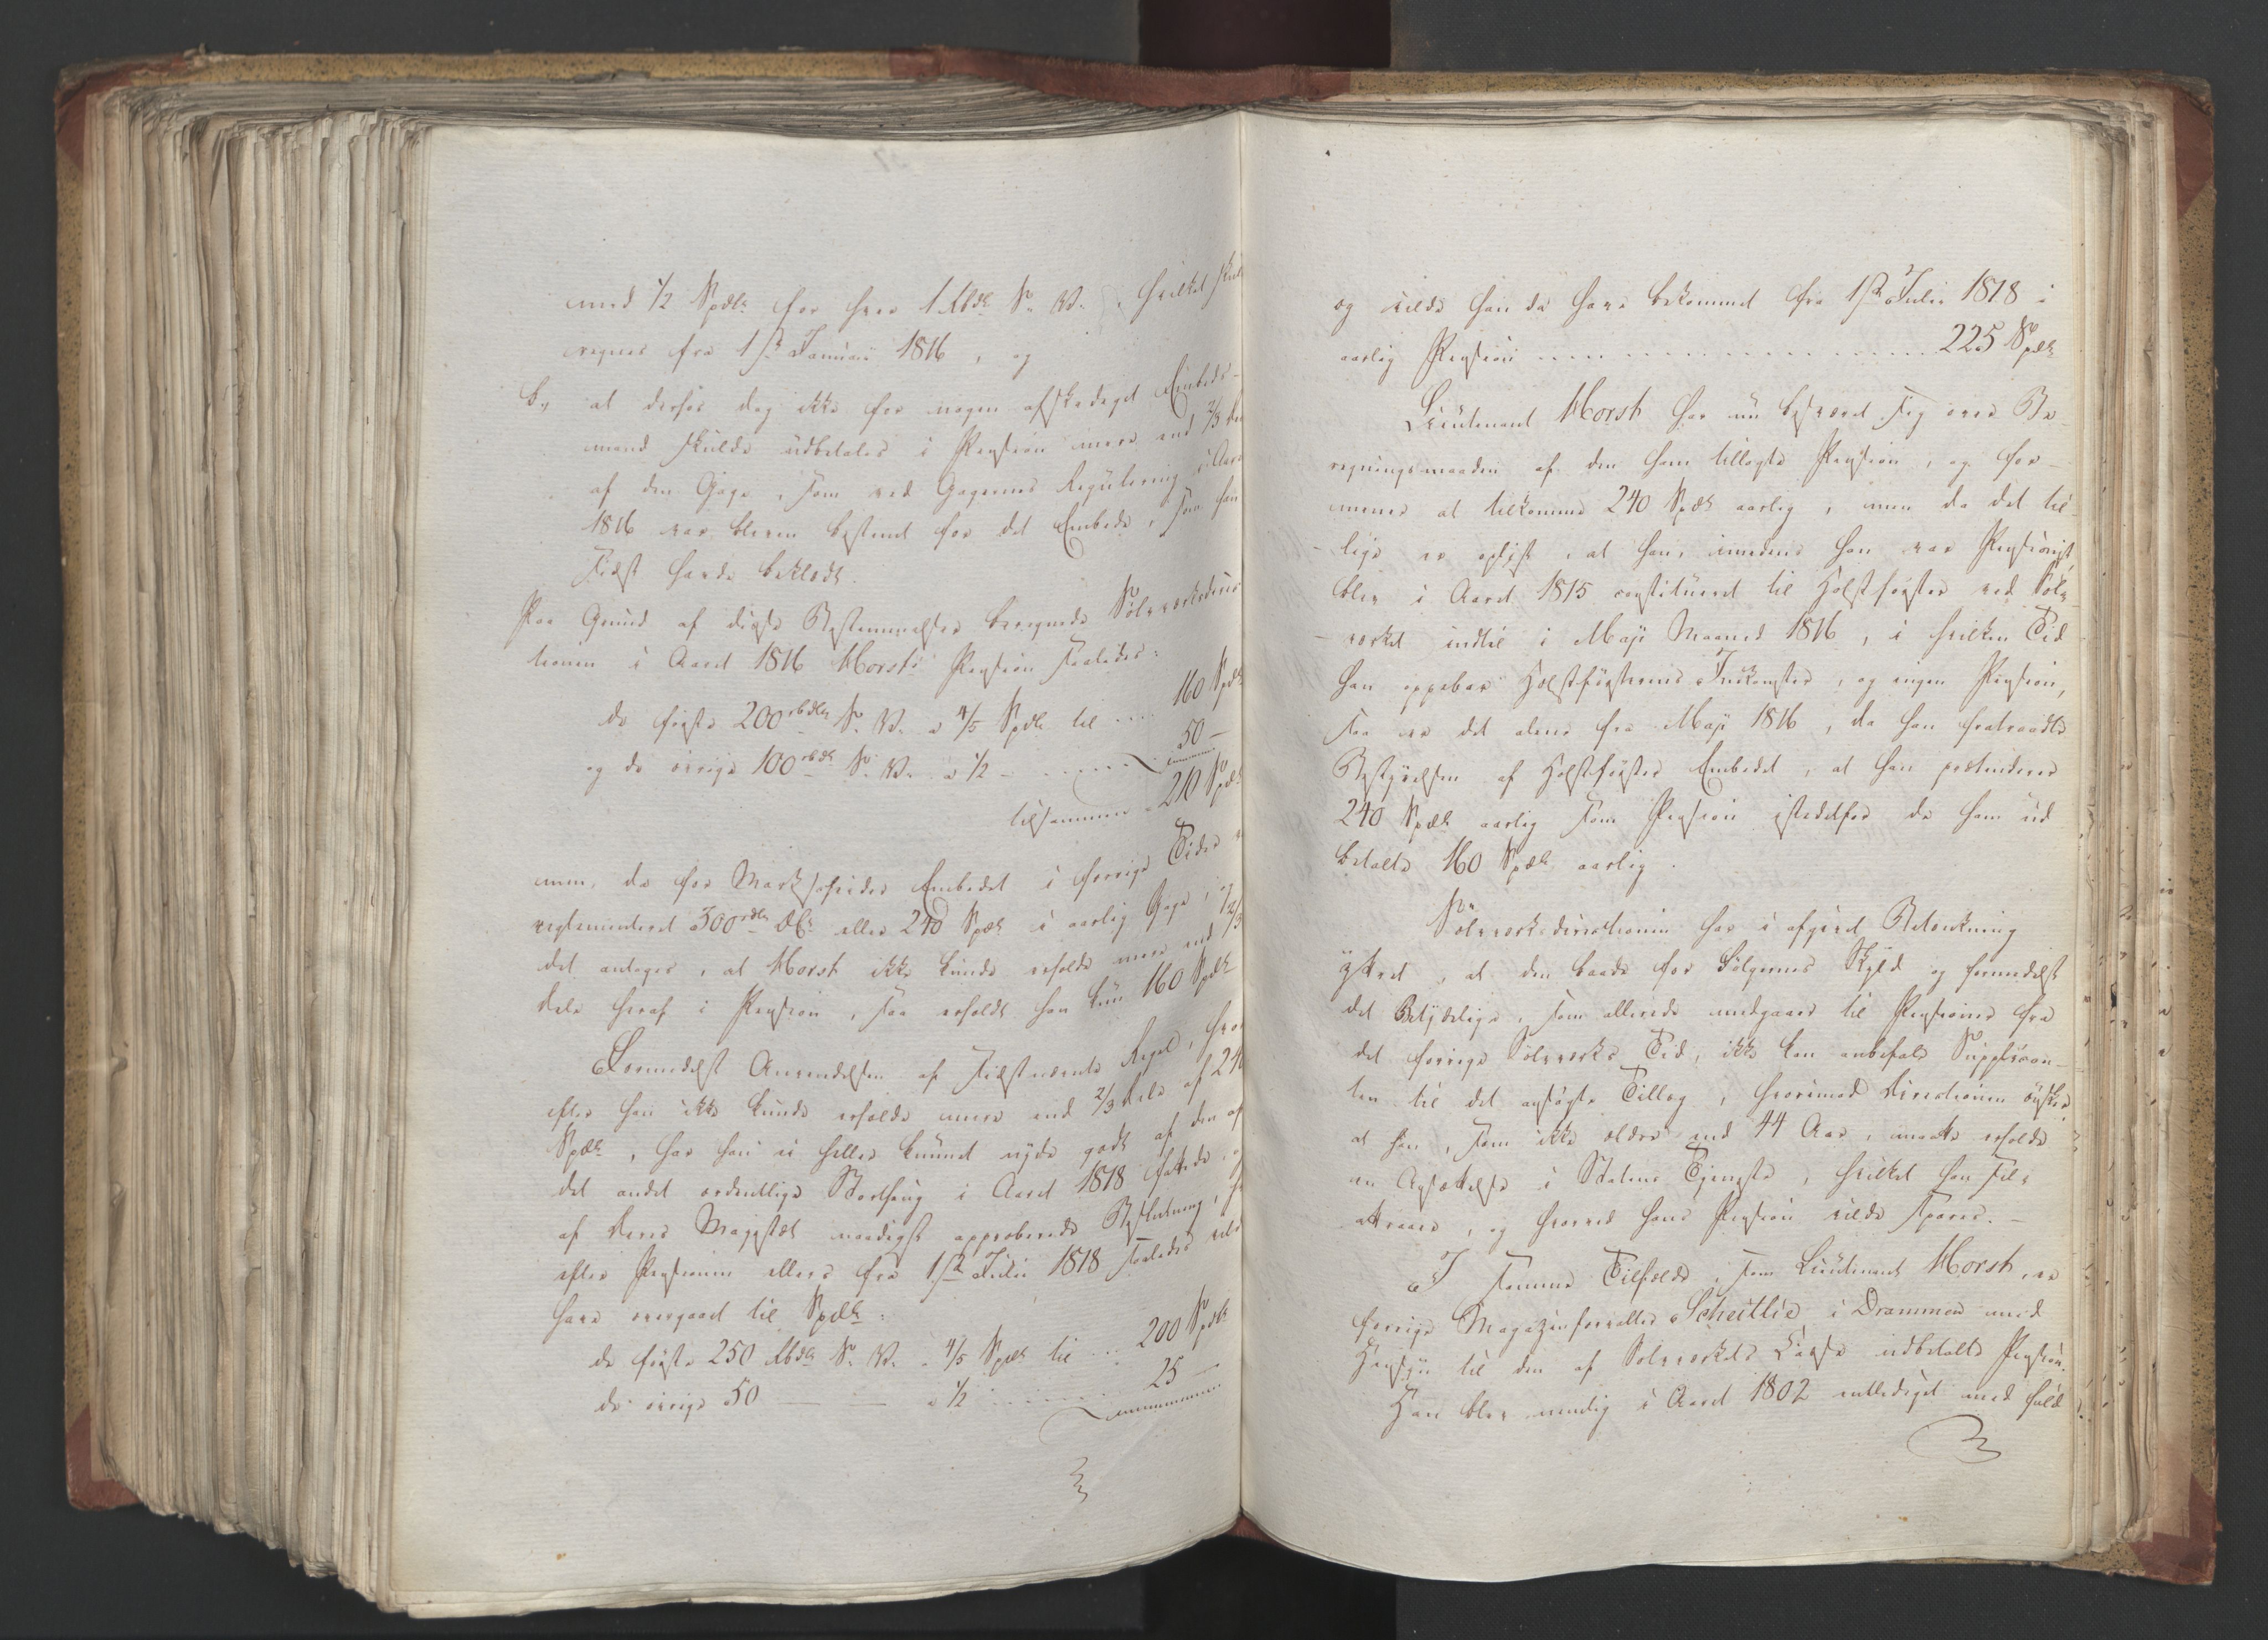 med 1/2 Spdlr for hver 1 Rbdlr S. V., hvilket skul
regnes fra 1ste Januar 1816, og
b., at derhos dog ikke for nogen afskediget Embeds-
mand skulde udbetales i Pension mere end 2/3 Dele
af den Gage, som ved Gagernes Regulering i Aaret
1816 var bleven bestemt for det Embede, som han
sidst havde beklædt.
Paa Grund af disse Bestemmelser beregnede Sølvværksdirec
tionen i Aaret 1816 Morsts Pension saaledes:
de første 200 rbdlr S. V. a 4/5 Spdlr til .... 160 Spdlr
og de øvrige 100 rbdlr S. V. a 1/2 - ..... 50 -
tilsammen 210 Spdlr
men, da for Markscheider Embedet i forrige Tider
reglementeret 300 rdlr DC. eller 240 Spdlr i aarlig Gage, og
det antages, at Morst ikke kunde erholde mere end 2/3
Dele heraf i Pension, saa erholdt han kun 160 Spdlr
Formedelst Anvendelsen af sidstnævnte Regel, hvor
efter han ikke kunde erholde mere end 2/3 Dele af 240
Spdlr, har han ei heller kunnet nyde godt af den af
det andet ordentlige Storthing i Aaret 1818 fattede, og
af Deres Majestæt naadigst approberede Beslutning, hvor
efter Pensionen ellers fra 1ste Julii 1818 saaledes vilde
have overgaaet til Spdlr:
de første 250 Rbdlr S. V. a 4/5 Spdlr til ... 200 Spdlr
de øvrige 50 — — a 1/2 ....... 25 —
og vilde han da have bekommet fra 1ste Julii 1818 i
aarlig Pension ................ 225 Spdlr
Lieutenant Morst har nu besværet sig over Be-
regningsmaaden af den ham tillagte Pension, og for-
mener at tilkomme 240 Spdlr aarlig, men da det til-
lige er oplyst, at han, imedens han var Pensionist
blev i Aaret 1815 constitueret til Holtsførster ved Sølv-
værket indtil i Maji Maaned 1816, i hvilken Tid
han oppebar Holtsførsterens Indkomster, og ingen Pension,
saa er det alene fra Maji 1816, da han fratraadte
Bestyrelsen af Holtsførster Embedet, at han prætenderer
240 Spdlr aarlig som Pension istedetfor de ham ud
betalte 160 Spdlr aarlig.
Sølvværksdirectionen har i afgivet Betænkning
yttret, at den baade for Følgernes Skyld og formedelst
det Betydelige, som allerede medgaaer til Pensioner fra
det forrige Sølvværks Tid, ikke kan anbefale Supplican-
ten til det ansøgte Tillæg, hvorimod Directionen ønsker
at han, som ikke ældre end 44 Aar, maatte erholde
en Ansættelse i Statens Tjeneste, hvilket han selv
attraaer, og hvorved hans Pension vilde spares. —
I samme Tilfælde, som Lieutenant Morst, er
forrige Magazinforvalter Scheitlie i Drammen med
Hensyn til den af Sølvværkets Casse udbetalte Pension.
Han blev nemlig i Aaret 1802 entlediget med fuld